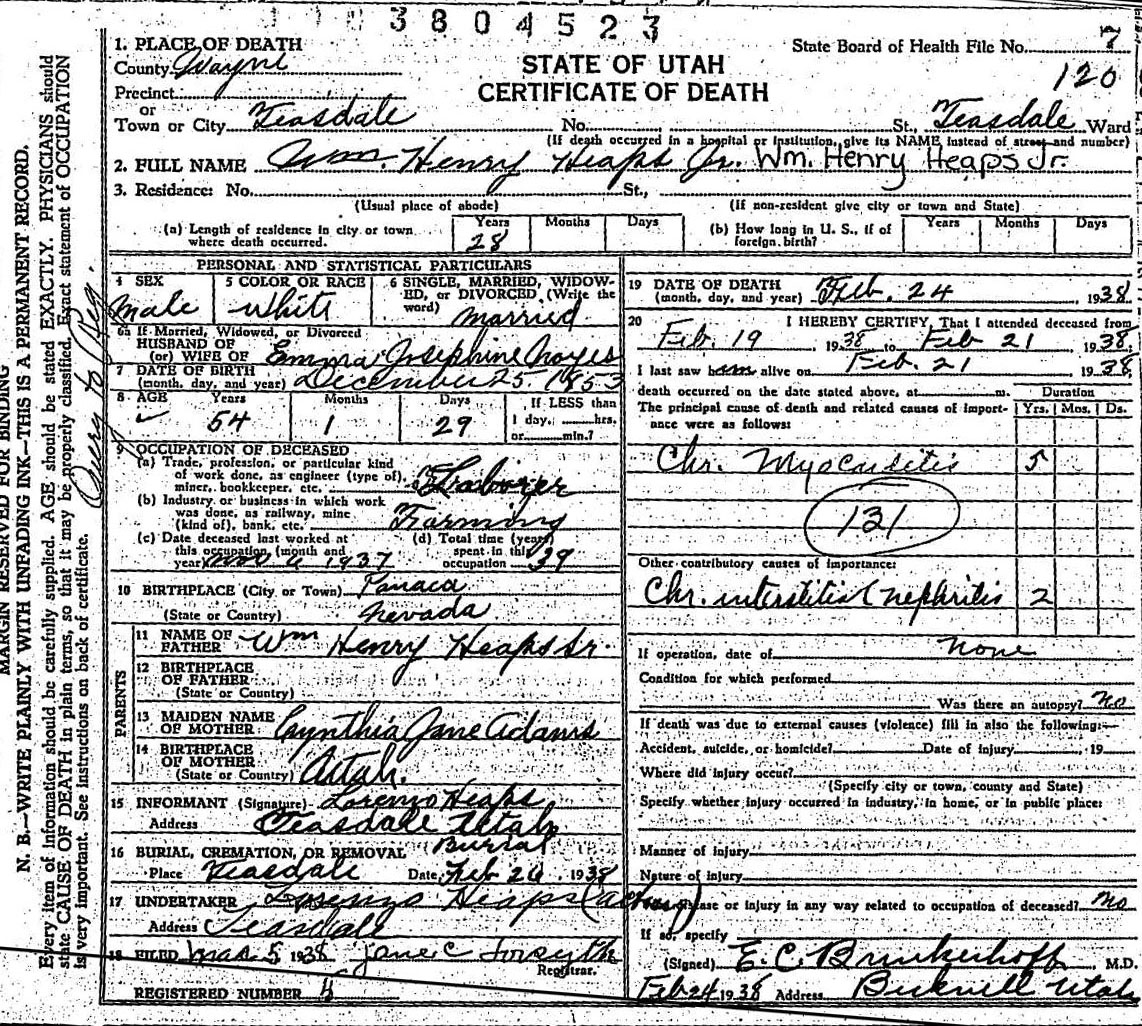 3804523
1. PLACE OF DEATH
State Board of Health File No. 7
County Wayne
STATE OF UTAH
120
Precinct
CERTIFICATE OF DEATH
or
Town or City Teasdale No. St., Teasdale Ward
(If death occurred in a hospital or institution, give its NAME instead of street and number)
2. FULL NAME Wm. Henry Heaps Jr. Wm. Henry Heaps Jr.
3. Residence: No. St.,
(Usual place of abode) (If non-resident give city or town and State)
(a) Length of residence in city or town where death occurred. Years 28 Months Days
(b) How long in U. S., if of foreign birth? Years Months Days
PERSONAL AND STATISTICAL PARTICULARS
4 SEX male
5 COLOR OR RACE white
6 SINGLE, MARRIED, WIDOWED, or DIVORCED (Write the word) married
6a If Married, Widowed, or Divorced
HUSBAND OF
(or) WIFE OF Emma Josephine Noyes
7 DATE OF BIRTH
(month, day, and year) December 25 1853
8 AGE Years 54 Months 1 Days 29 If LESS than 1 day, hrs. or min.?
9 OCCUPATION OF DECEASED
(a) Trade, profession, or particular kind
of work done, as engineer (type of),
miner, bookkeeper, etc.
(b) Industry or business in which work
was done, as railway, mine
(kind of), bank, etc. Farming
(c) Date deceased last worked at
this occupation (month and
year) 1937
(d) Total time (years)
spent in this
occupation 39
10 BIRTHPLACE (City or Town) Panaca
(State or Country) Nevada
PARENTS
11 NAME OF FATHER Wm Henry Heaps Sr.
12 BIRTHPLACE OF FATHER
(State or Country)
13 MAIDEN NAME OF MOTHER Cynthia Jane Adams
14 BIRTHPLACE OF MOTHER
(State or Country) Utah.
15 INFORMANT (Signature) Lorenzo Heaps
Address Teasdale Utah
16 BURIAL, CREMATION, OR REMOVAL Burial
Place Teasdale Date Feb 26, 1938
17 UNDERTAKER Lorenzo Heaps
Address Teasdale
18 FILED Mar 5 1938 Jane C Forsyth
Registrar.
REGISTERED NUMBER 4
19 DATE OF DEATH
(month, day, and year) Feb. 24 1938
20 I HEREBY CERTIFY, That I attended deceased from
Feb. 19 1938 to Feb 21 1938
I last saw him alive on Feb. 21 1938
death occurred on the date stated above, at m.
Duration
The principal cause of death and related causes of importance were as follows: Yrs. Mos. Ds.
Chr. Myocarditis 5
131
Other contributory causes of importance:
Chr. interstitial nephritis 2
If operation, date of none
Condition for which performed
Was there an autopsy? no
If death was due to external causes (violence) fill in also the following:—
Accident, suicide, or homicide? Date of injury , 19
Where did injury occur?
(Specify city or town, county and State)
Specify whether injury occurred in industry, in home, or in public place:
Manner of injury
Nature of injury
disease or injury in any way related to occupation of deceased? no
If so, specify
(Signed) E. C. Brinkerhoff, M.D.
Feb 24 1938 Address Bicknell Utah
MARGIN RESERVED FOR BINDING
N. B.—WRITE PLAINLY WITH UNFADING INK—THIS IS A PERMANENT RECORD.
Every item of information should be carefully supplied. AGE should be stated EXACTLY. PHYSICIANS should
state CAUSE OF DEATH in plain terms, so that it may be properly classified. Exact statement of OCCUPATION
is very important. See instructions on back of certificate.
Query to Reg.